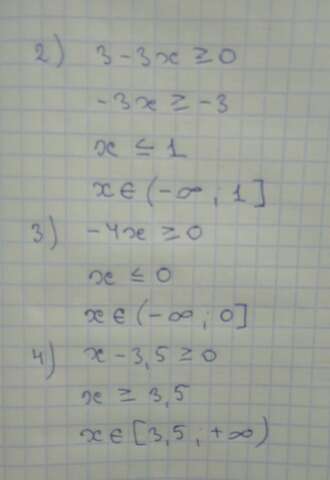 2) 3 - 3x ≥ 0
-3x ≥ -3
x ≤ 1
x ∈ (-∞ ; 1]
3) -4x ≥ 0
x ≤ 0
x ∈ (-∞ ; 0]
4) x - 3,5 ≥ 0
x ≥ 3,5
x ∈ [3,5 ; +∞)